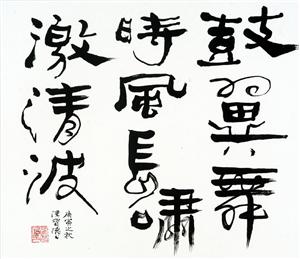 鼓翼舞
時風長嘯
激清波
之秋